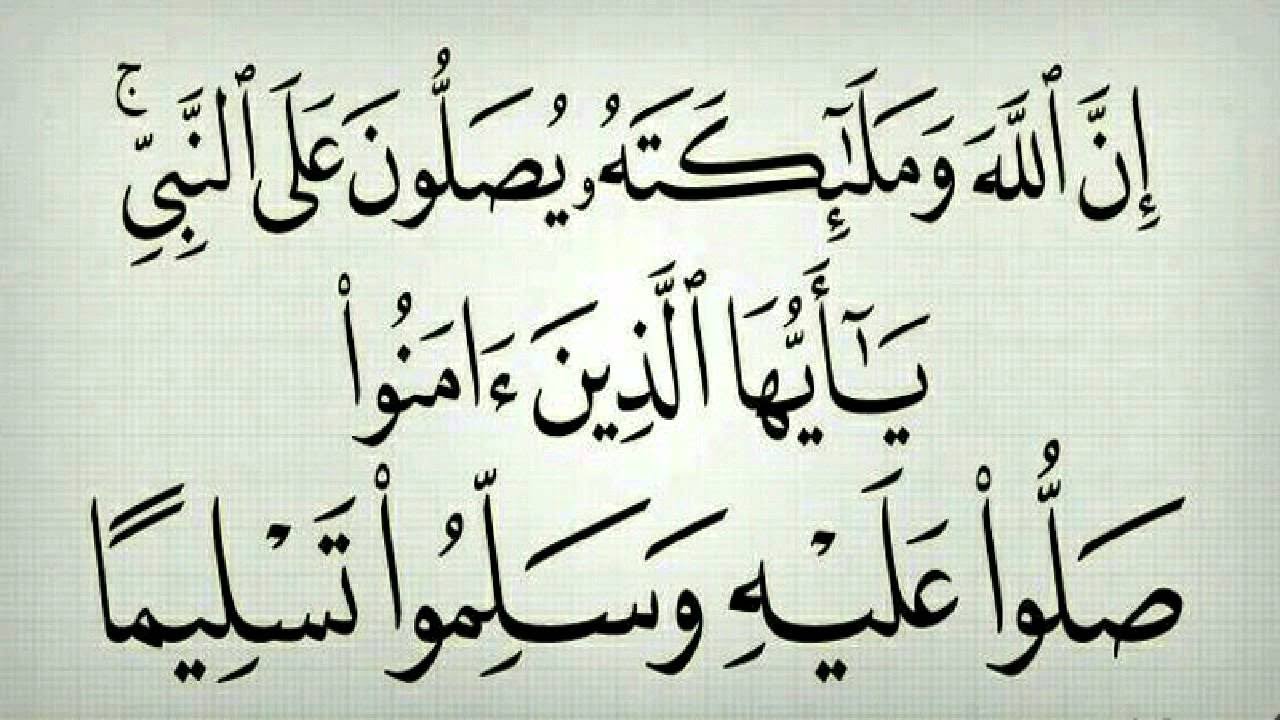 إِنَّ ٱللَّهَ وَمَلَـٰٓئِكَتَهُۥ يُصَلُّونَ عَلَى ٱلنَّبِىِّ ۚ
يَـٰٓأَيُّهَا ٱلَّذِينَ ءَامَنُوا۟
صَلُّوا۟ عَلَيْهِ وَسَلِّمُوا۟ تَسْلِيمًا